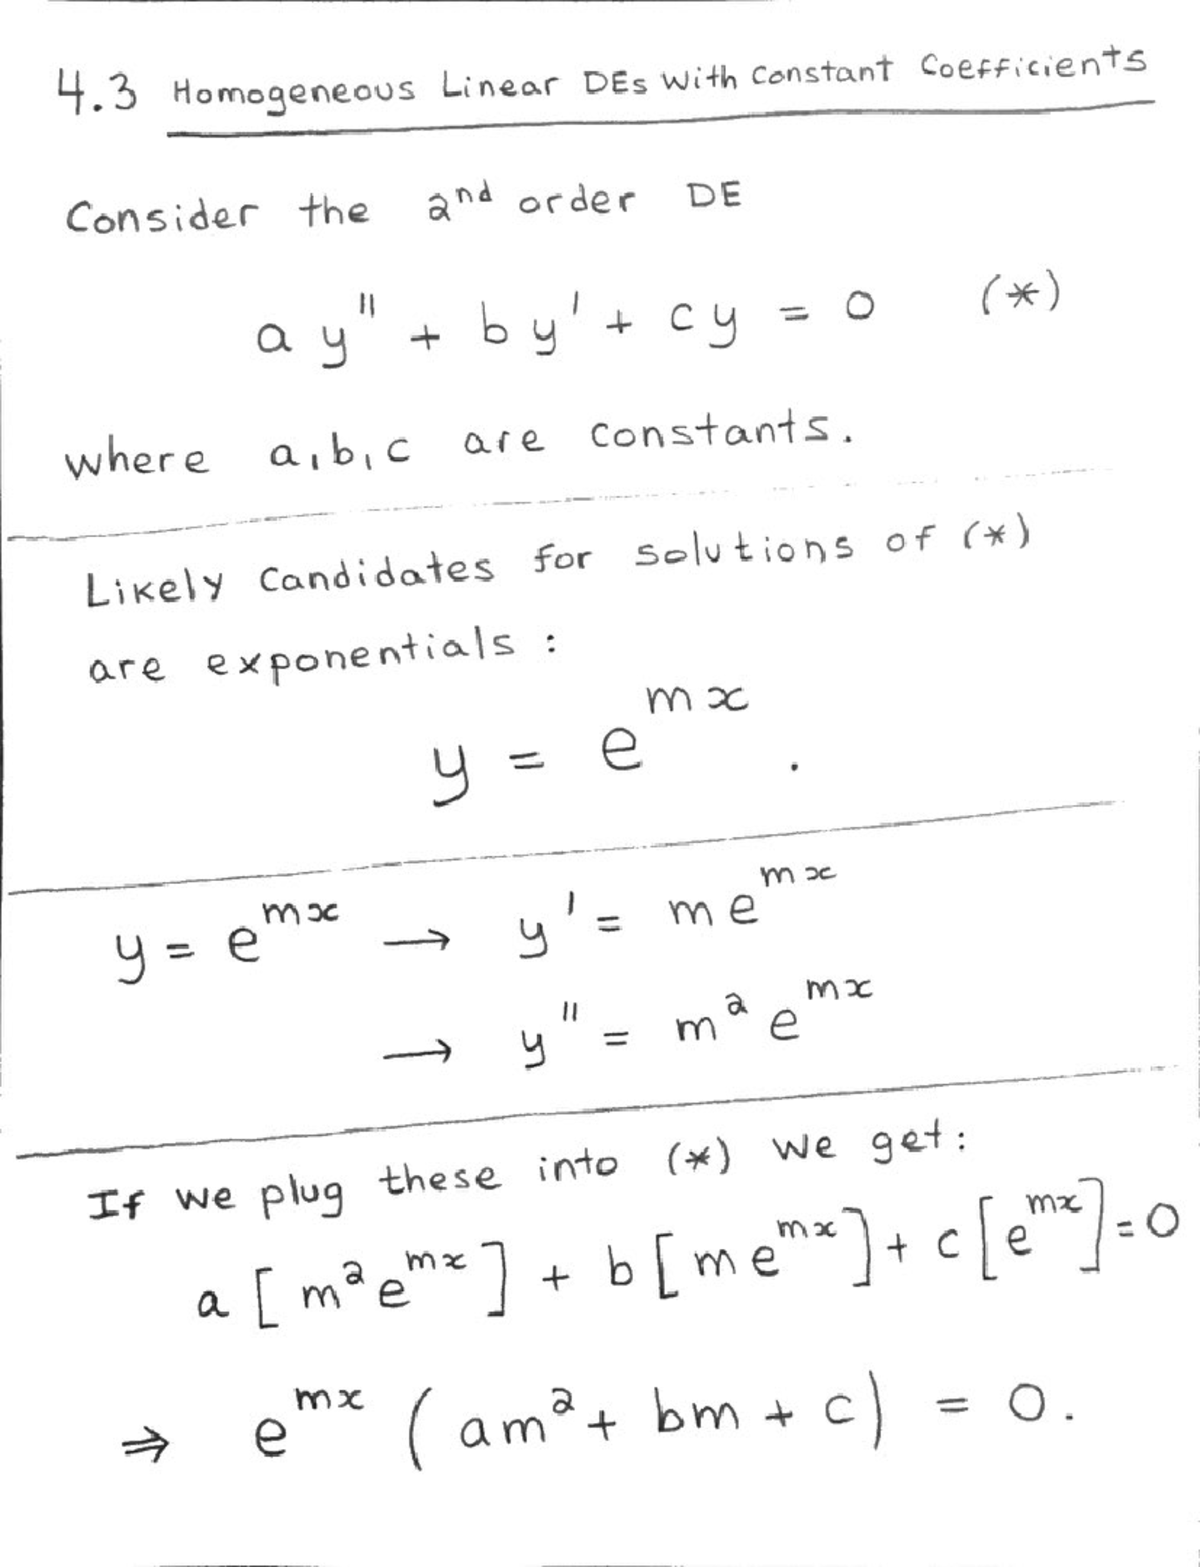 4.3 Homogeneous Linear DEs With Constant Coefficients
Consider the 2nd order DE
a y'' + b y' + c y = 0 (*)
where a, b, c are constants.
Likely Candidates for Solutions of (*)
are exponentials :
y = e^{mx} .
y = e^{mx} → y' = m e^{mx}
→ y'' = m² e^{mx}
If we plug these into (*) we get:
a [ m² e^{mx} ] + b [ m e^{mx} ] + c [ e^{mx} ] = 0
⇒ e^{mx} ( am² + bm + c ) = 0.